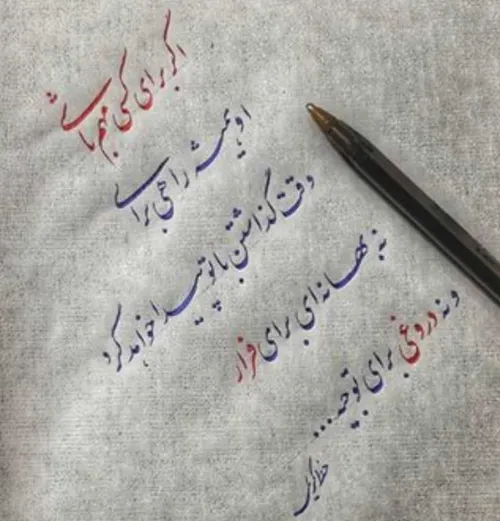 اگر برای کسی مهم باشی
او همیشه راهی برای
وقت گذاشتن با تو پیدا خواهد کرد
نه بهانه‌ای برای فرار
و نه دروغی برای توجیه...